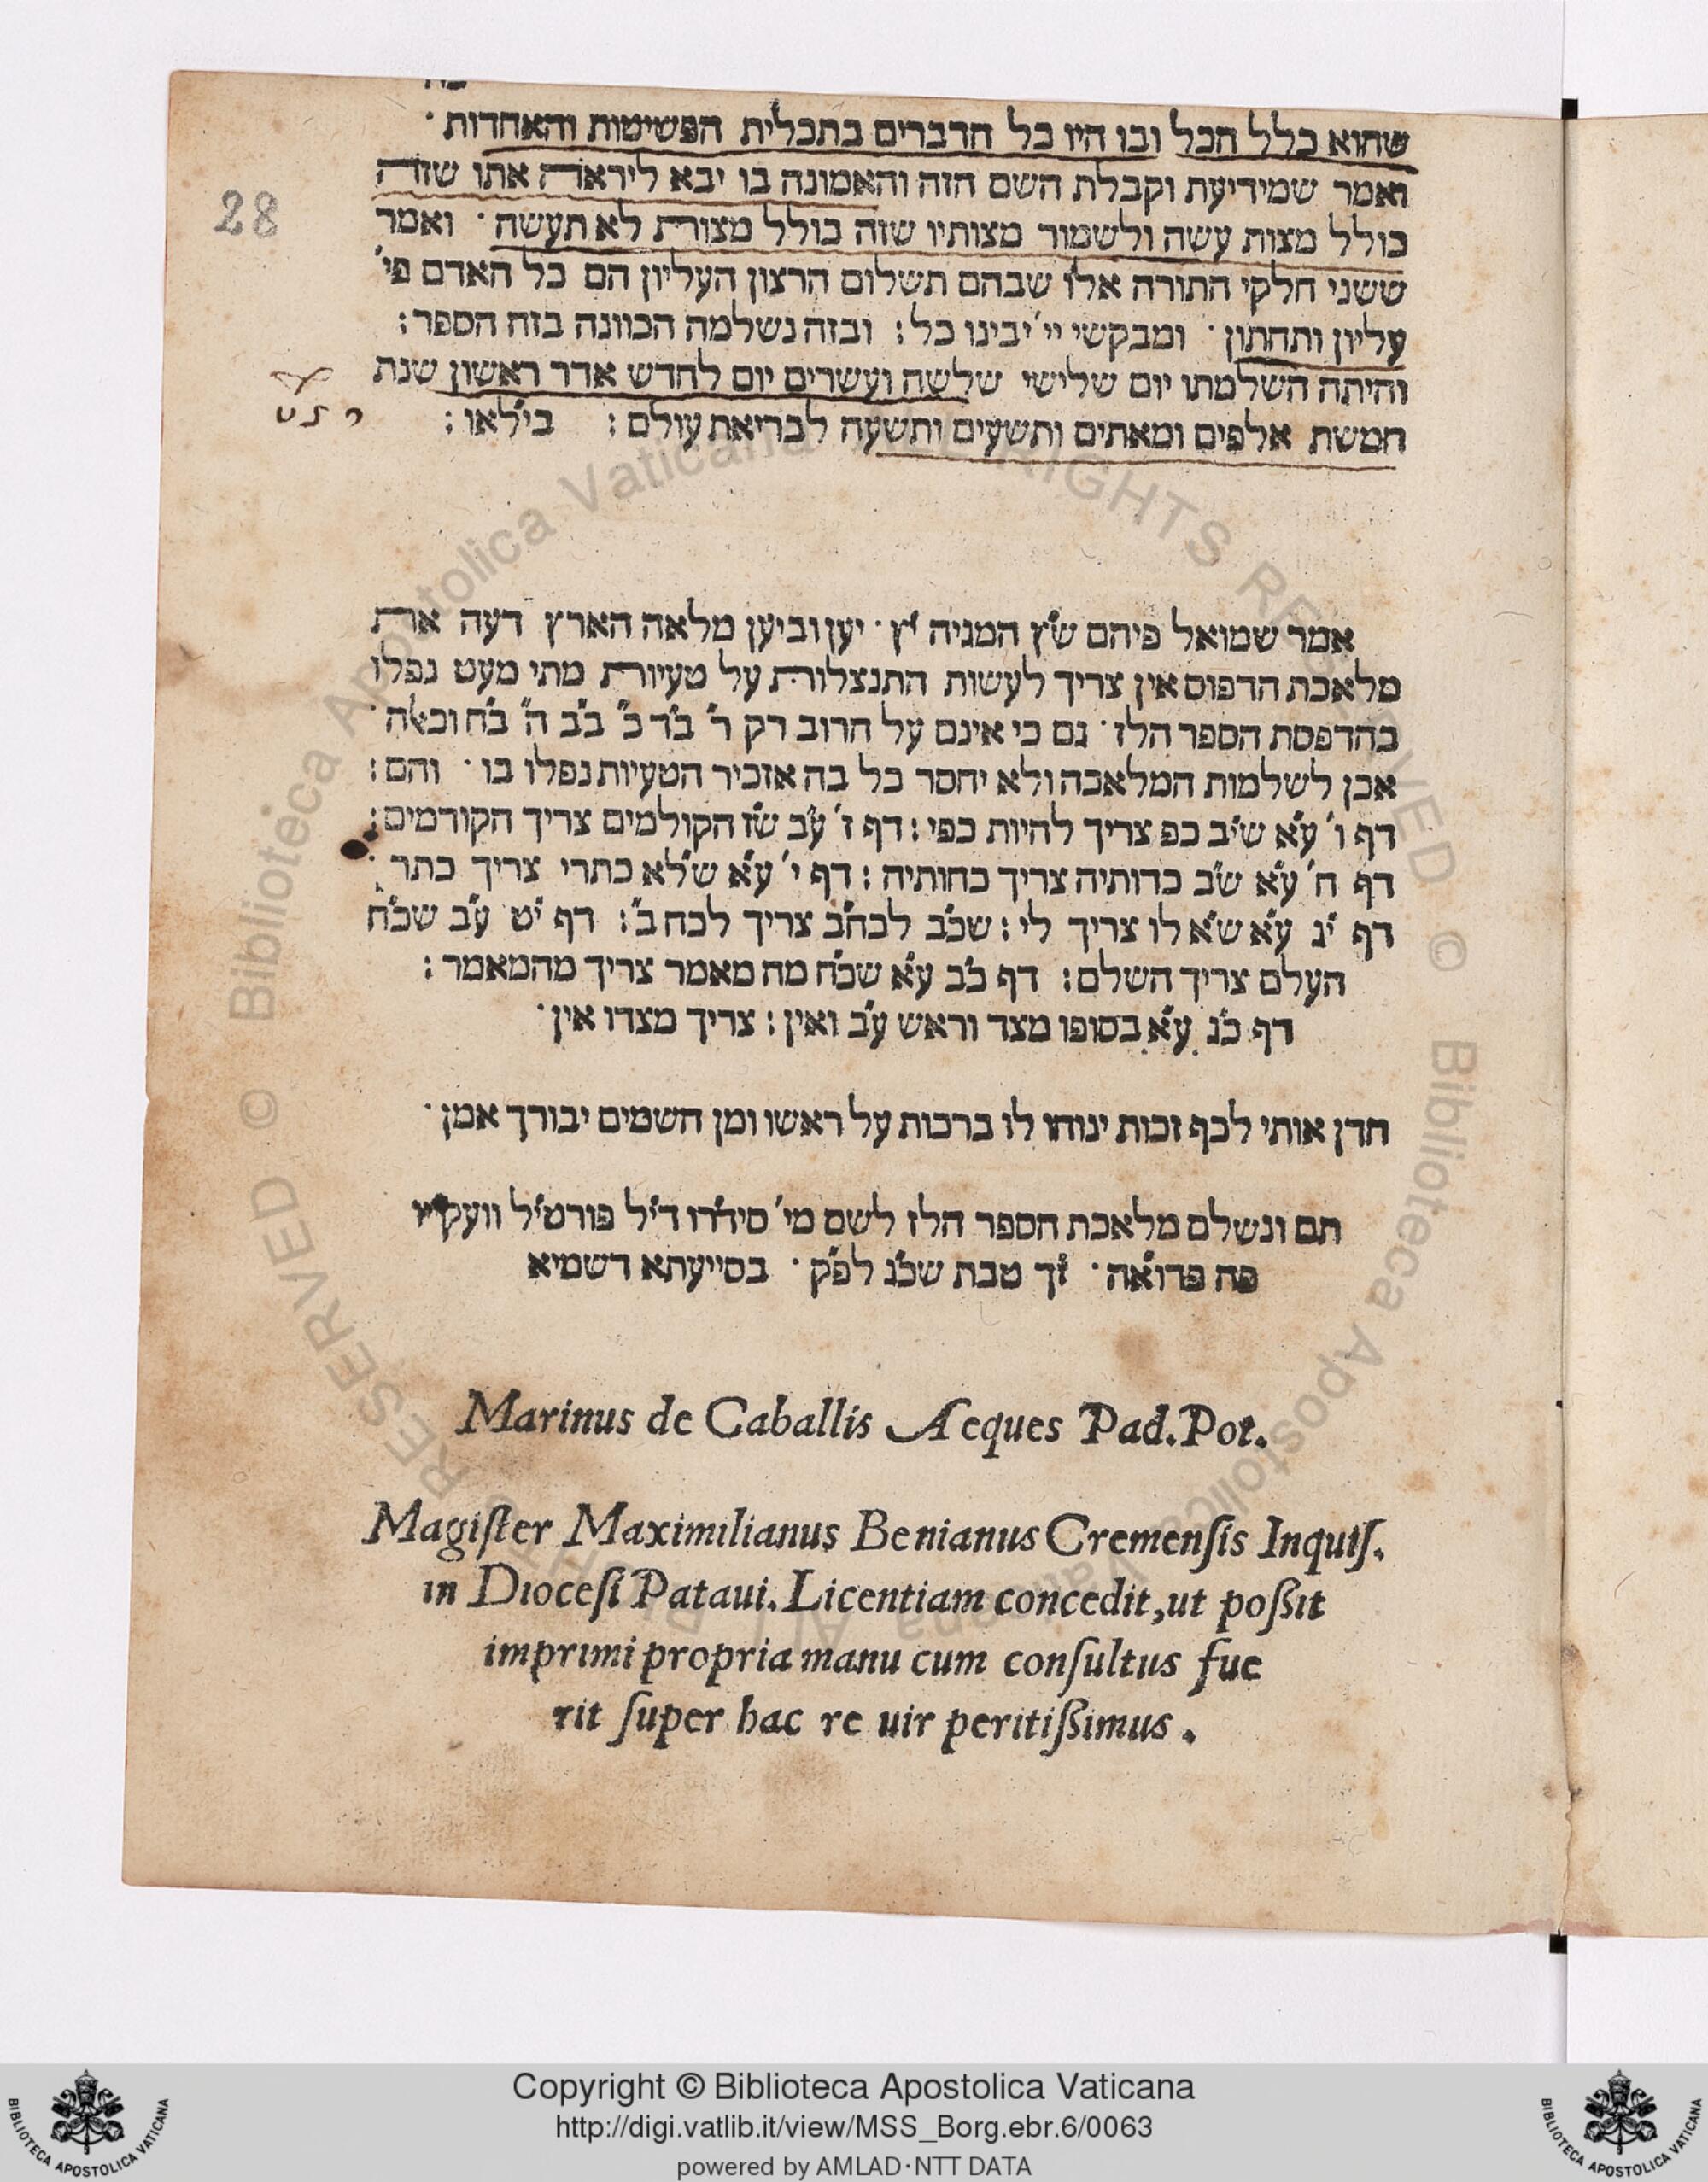 שהוא כלל הכל ובו היו כל הדברים בתכלית הפשיטות והאחדות ·
ואמר שמידיעת וקבלת השם הזה והאמונה בו יבא ליראה אתו שזה
כולל מצות עשה ולשמור מצותיו שזה כולל מצות לא תעשה · ואמר
28
ששני חלקי התורה אלו שבהם תשלום הרצון העליון הם כל האדם פי'
עליון ותחתון · ומבקשי יי' יבינו כל : ובזה נשלמה הכוונה בזה הספר :
והיתה השלמתו יום שלישי שלשה ועשרים יום לחדש אדר ראשון שנת
חמשת אלפים ומאתים ותשעים ותשעה לבריאת עולם : בי"לאו :
אמר שמואל פיהם ש"ץ המגיה י"ץ · יען וביען מלאה הארץ דעה את
מלאכת הדפוס אין צריך לעשות התנצלות על טעיות מתי מעט נפלו
בהדפסת הספר הלז · גם כי אינם על הרוב רק ר" בד' כ" בב' ה" בח' וכאלה ·
אכן לשלמות המלאכה ולא יחסר כל בה אזכיר הטעיות נפלו בו · והם :
דף ו' ע"א שי"ב כפ צריך להיות כפי : דף ז' ע"ב ש"ז הקולמים צריך הקודמים :
דף ח' ע"א ש"ב כדותיה צריך כחותיה : דף י' ע"א של"א כתרי צריך כתר ·
דף י"ג ע"א ש"א לו צריך לי : שכ"ב לכח"ב צריך לכח ב" : דף י"ט ע"ב שכ"ח
העלם צריך השלם : דף כ"ב ע"א שכ"ח מה מאמר צריך מהמאמר :
דף כ"ג ע"א בסופו מצד וראש ע"ב ואין : צריך מצדו אין ·
הדן אותי לכף זכות ינוחו לו ברכות על ראשו ומן השמים יבורך אמן ·
תם ונשלם מלאכת הספר הלז לשם מי' סידרו די"ל פורטי"ל
פה פדואה · ז"ך טבת שכ"ג לפ"ק · בסייעתא דשמיא
Marinus de Caballis Aeques Pad. Pot.
Magiſter Maximilianus Benianus Cremenſis Inquiſ.
in Dioceſi Pataui. Licentiam concedit, ut poſsit
imprimi propria manu cum conſultus fue
rit ſuper hac re uir peritiſsimus.
Copyright © Biblioteca Apostolica Vaticana
http://digi.vatlib.it/view/MSS_Borg.ebr.6/0063
powered by AMLAD·NTT DATA
BIBLIOTECA APOSTOLICA VATICANA
BIBLIOTECA APOSTOLICA VATICANA